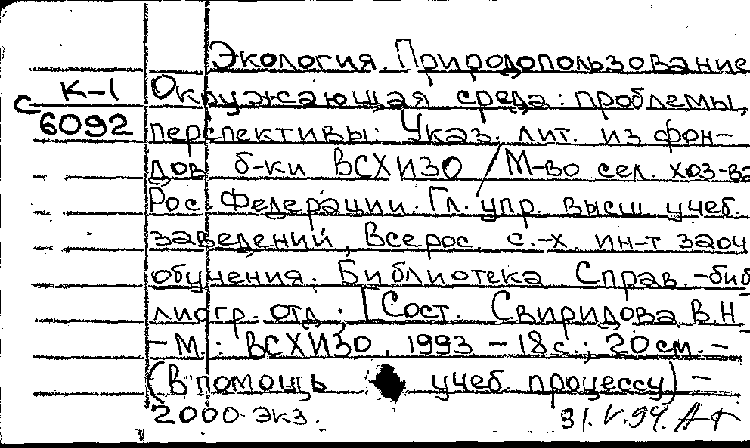 Экология. Природопользование
К-1
Окружающая среда: проблемы,
с
6092
перспективы: Указ. лит. из фон-
дов б-ки ВСХИЗО / М-во сел. хоз-ва
Рос. Федерации. Гл. упр. высш. учеб.
заведений, Всерос. с.-х. ин-т заоч.
обучения; Библиотека Справ.-биб
лиогр. отд.; [Сост. Свиридова В.Н.
- М.: ВСХИЗО, 1993 - 18 с.; 20 см. -
(В помощь учеб. процессу) -
2000 экз.
31.V.94.